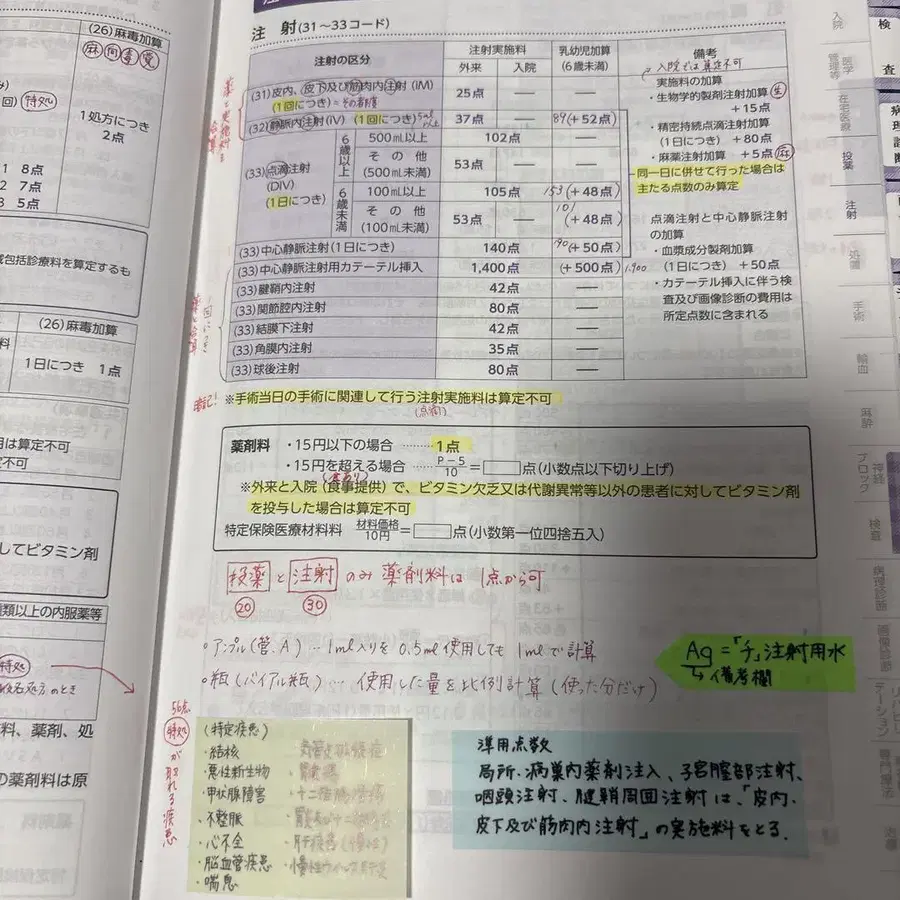 (26)麻毒加算
麻 向 毒 覚
回) 特処
1処方につき
2点
1 8点
2 7点
3 5点
減包括診療料を算定するも
(26)麻毒加算
1日につき 1点
用は算定不可
定不可
してビタミン剤
種類以上の内服薬等
特処
般名処方のとき
料、薬剤、処
の薬剤料は原
注 射(31〜33コード)
注射の区分
注射実施料
外来 入院
乳幼児加算
(6歳未満)
備考
入院では算定不可
(31)皮内、皮下及び筋肉内注射(iM)
(1回につき)=その都度
25点 — —
(32)静脈内注射(iV) (1回につき) 5ml以上
37点 — 89(+52点)
(33)点滴注射
(DIV)
(1日につき)
6歳以上
500mL以上 102点 — —
その他
(500mL未満) 53点 — —
6歳未満
100mL以上 105点 — 153(+48点)
その他
(100mL未満) 53点 — 101(+48点)
(33)中心静脈注射(1日につき) 140点 — 190(+50点)
(33)中心静脈注射用カテーテル挿入 1,400点 (+500点) 1,900
(33)腱鞘内注射 42点 —
(33)関節腔内注射 80点 —
(33)結膜下注射 42点 —
(33)角膜内注射 35点 —
(33)球後注射 80点 —
実施料の加算
・生物学的製剤注射加算 生
+15点
・精密持続点滴注射加算
(1日につき) +80点
・麻薬注射加算 +5点 麻
同一日に併せて行った場合は
主たる点数のみ算定
点滴注射と中心静脈注射
の加算
・血漿成分製剤加算
(1日につき) +50点
・カテーテル挿入に伴う検
査及び画像診断の費用は
所定点数に含まれる
暗記!
※手術当日の手術に関連して行う注射実施料は算定不可
(点滴)
薬剤料 ・15円以下の場合 ……… 1点
・15円を超える場合 ……… P−5/10 = 点(小数点以下切り上げ)
(食あり)
※外来と入院(食事提供)で、ビタミン欠乏又は代謝異常等以外の患者に対してビタミン剤
を投与した場合は算定不可
特定保険医療材料料 材料価格/10円 = 点(小数第一位四捨五入)
投薬 と 注射 のみ 薬剤料は 1点から可
20 30
。アンプル(管、A) … 1ml入りを 0.5ml使用しても 1mlで計算
。瓶(バイアル瓶) … 使用した量を比例計算(使った分だけ)
Ag=「チ」注射用水
備考欄
56点
特処 が取れる疾患
(特定疾患)
・結核
・悪性新生物
・甲状腺障害
・不整脈
・心不全
・脳血管疾患
・喘息
準用点数
局所・病巣内薬剤注入、子宮腟部注射、
咽頭注射、腱鞘周囲注射は、「皮内、
皮下及び筋肉内注射」の実施料をとる.
入院
医学管理等
在宅医療
投薬
注射
処置
手術
輸血
麻酔
神経ブロック
検査
病理診断
画像診断
検
査